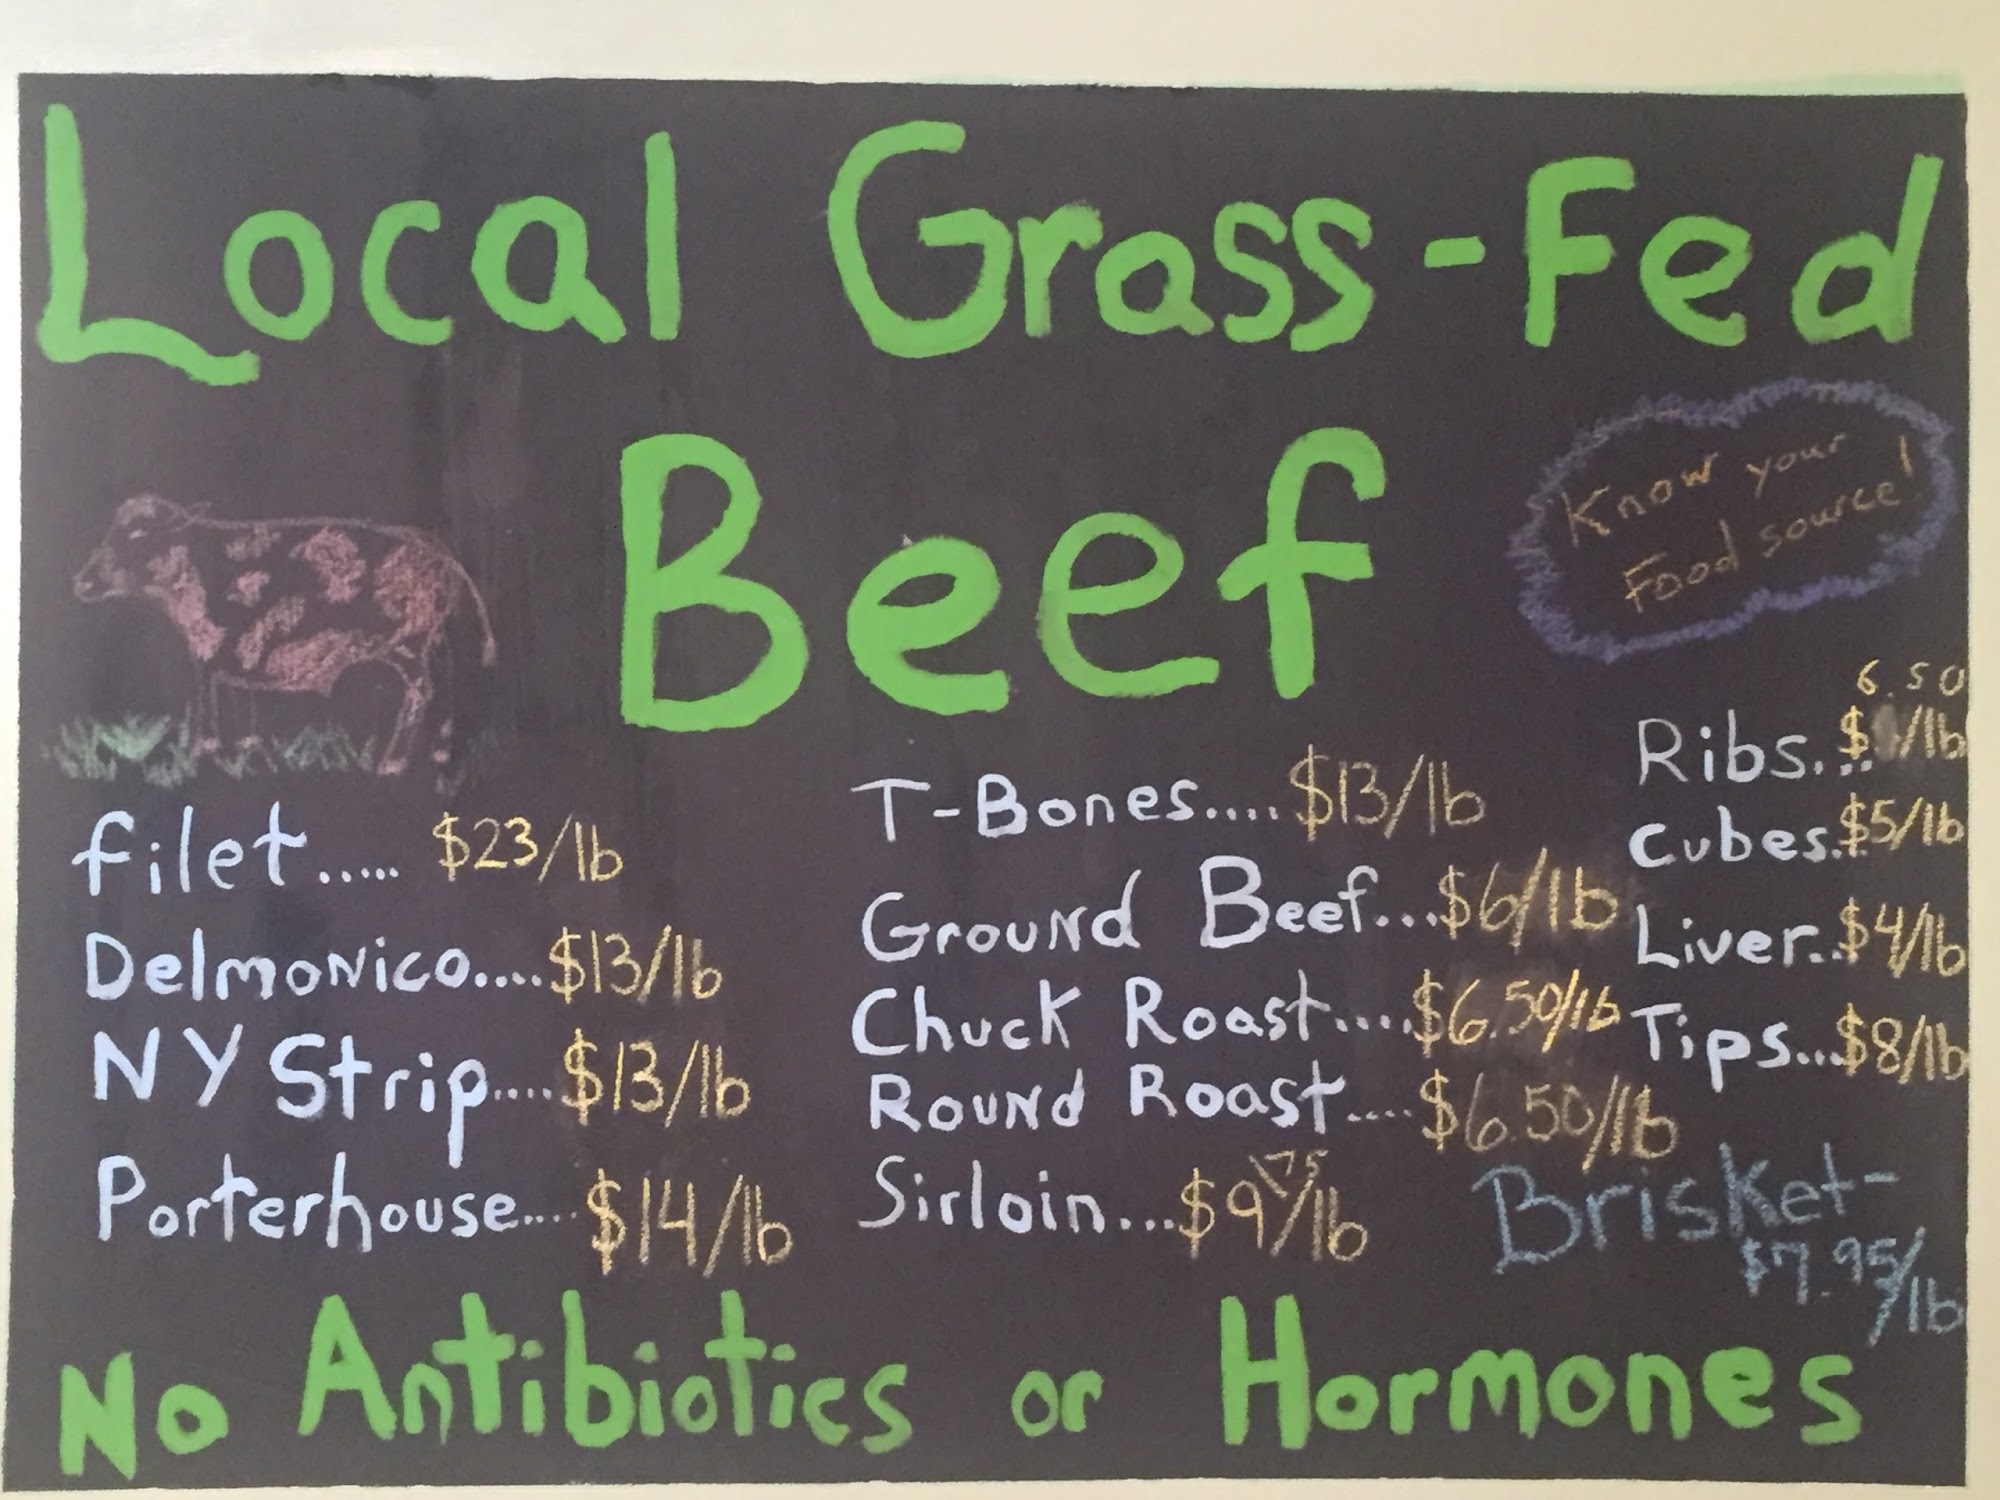 Local Grass-Fed
Beef
Know your
Food source!
filet..... $23/lb
Delmonico.... $13/lb
NY Strip.... $13/lb
Porterhouse.... $14/lb
T-Bones.... $13/lb
Ground Beef... $6/lb
Chuck Roast.... $6.50/lb
Round Roast.... $6.50/lb
Sirloin... $9.75/lb
6.50
Ribs... $ /lb
Cubes... $5/lb
Liver... $4/lb
Tips... $8/lb
Brisket-
$7.95/lb
No Antibiotics or Hormones